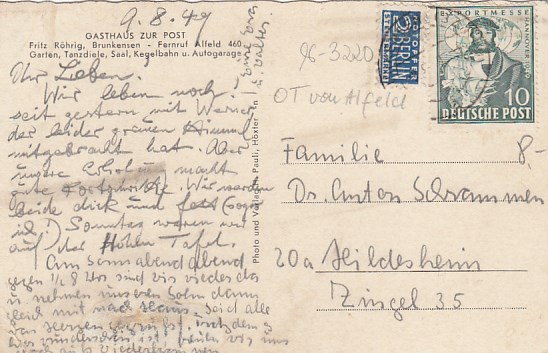 9.8.49
GASTHAUS ZUR POST
Fritz Röhrig, Brunkensen - Fernruf Alfeld 460
Garten, Tanzdiele, Saal, Kegelbahn u. Autogarage
Ihr Lieben.
Wir leben noch!
seit gestern mit Werner
der leider grauen Himmel
mitgebracht hat. Aber
unsere Erholung macht
gute Fortschritte. Wir werden
beide dick und fett (sogar
ich!) Sonntag waren wir
auf der Hohen Tafel.
Am Sonnabend abend
gegen 1/2 8 Uhr sind wir wieder da
u. nehmen unseren Sohn dann
gleich mit nach
Seid alle
von Herzen gegrüßt.
Photo und Verlag: W. Pauli, Höxter
NOTOPFER
2 BERLIN
STEUERMARKE
EXPORTMESSE HANNOVER 1949
10
DEUTSCHE POST
96-3220
OT von Alfeld
8,-
Familie
Dr. Anton Schrammen
20a Hildesheim
Zingel 35